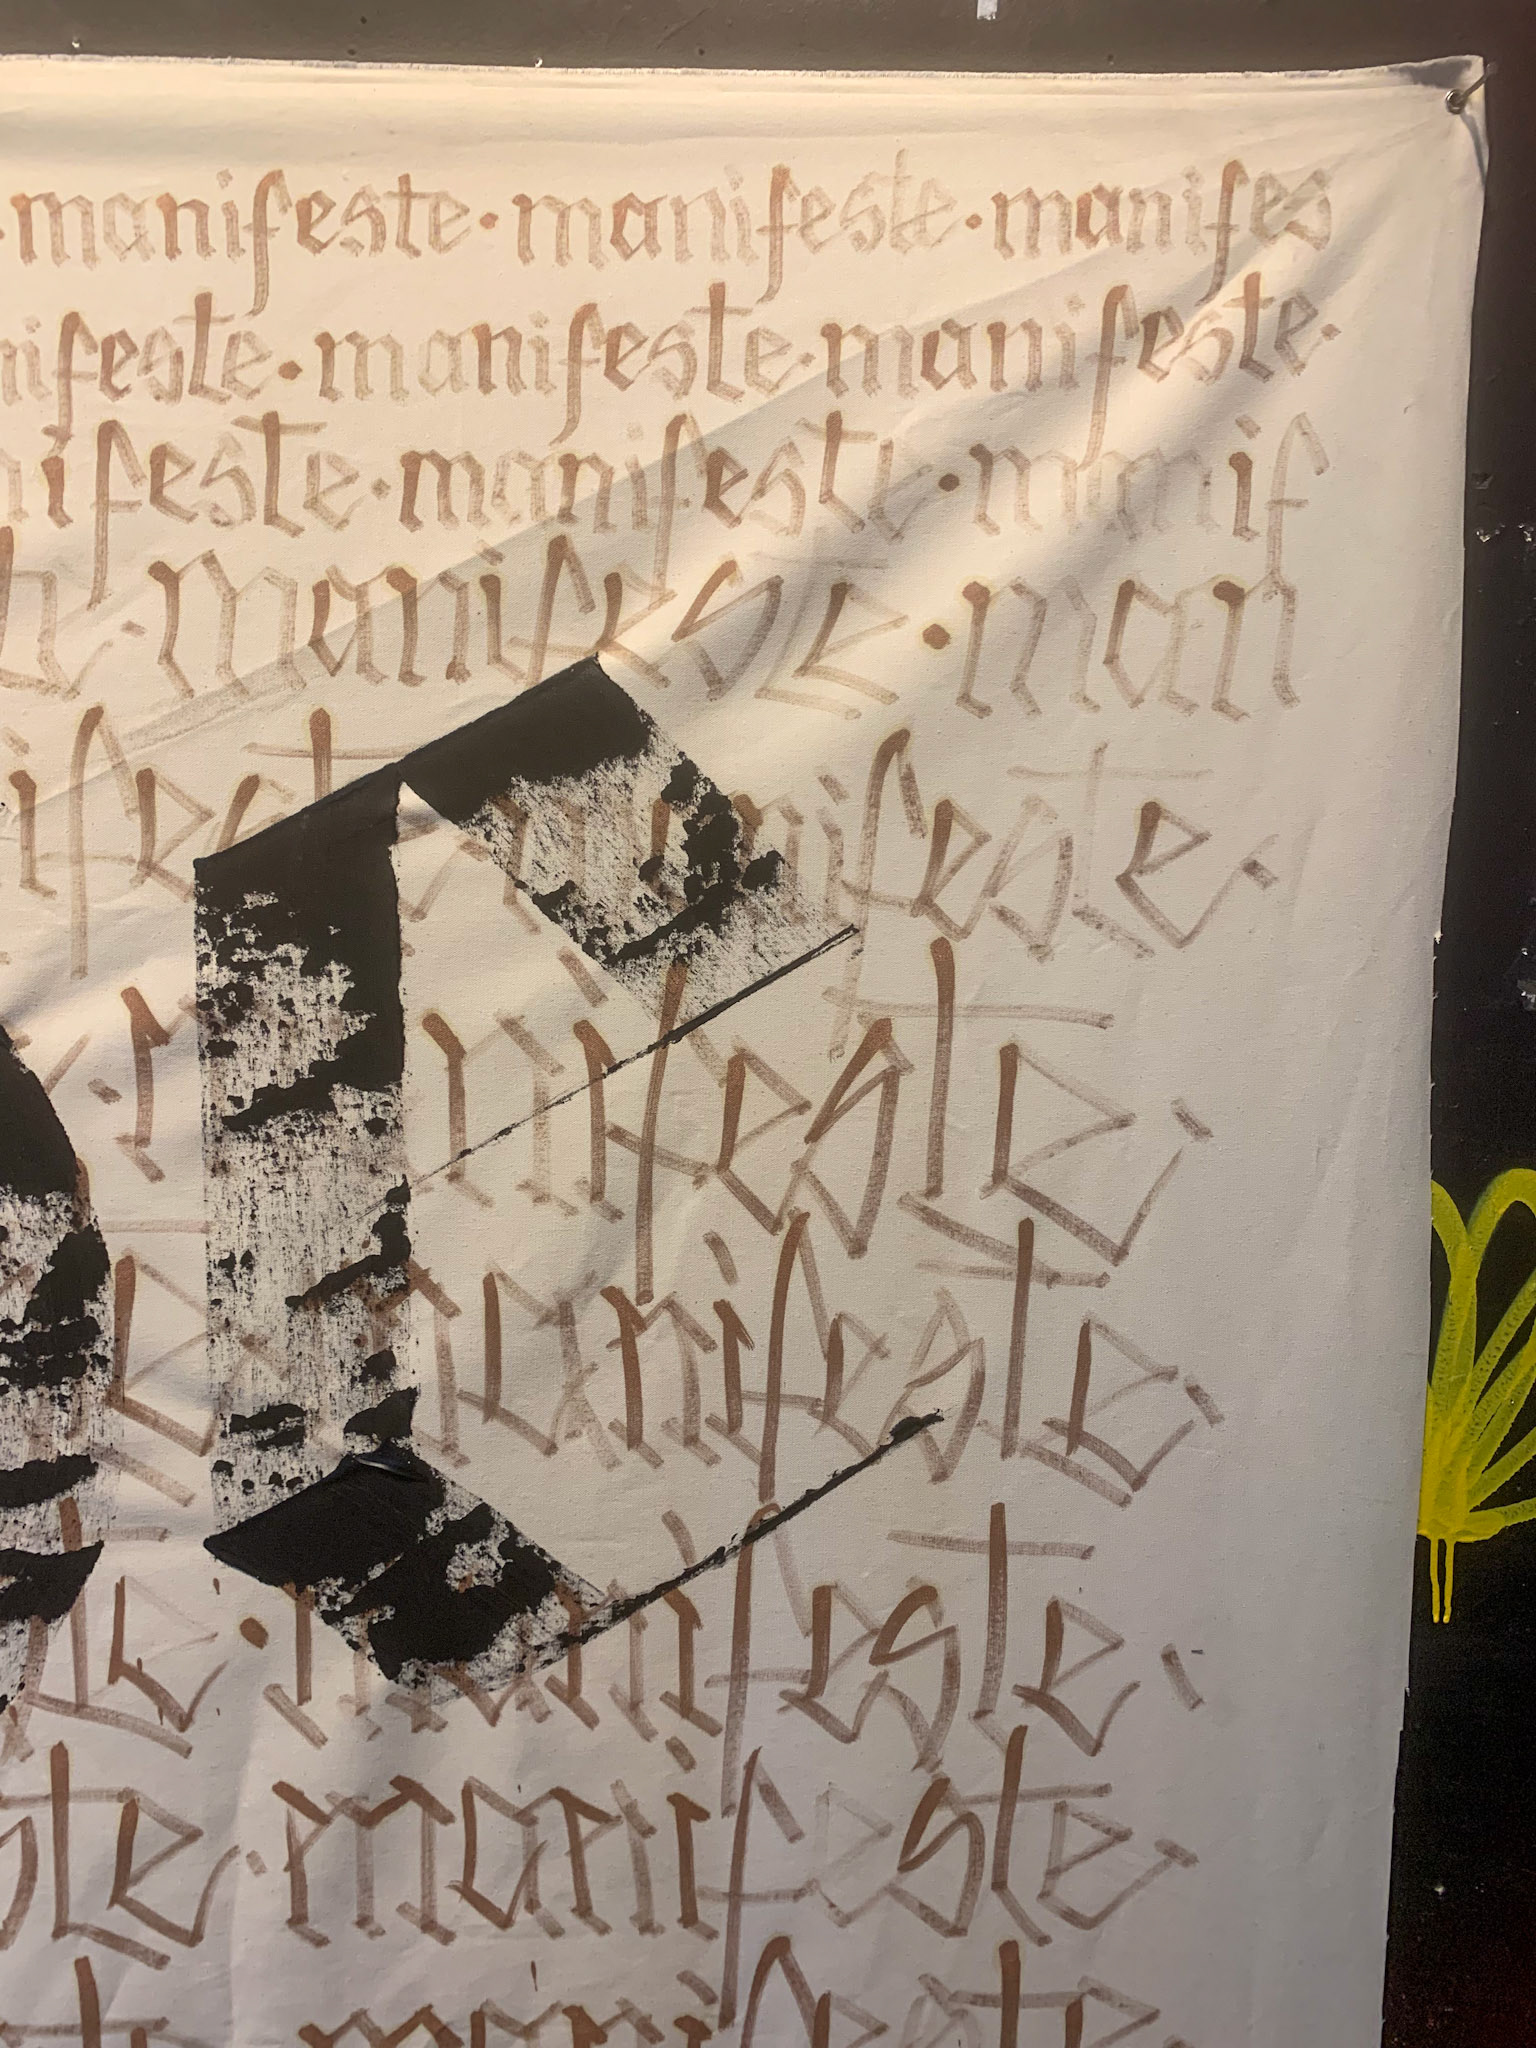 · manifeste · manifeste · manifes
nifeste · manifeste · manifeste ·
nifeste · manifeste · manif
te · manifeste · man
ifeste manifeste ·
manifeste ·
e manifeste ·
te · manifeste ·
ste · manifeste ·
ste manifeste ·
e